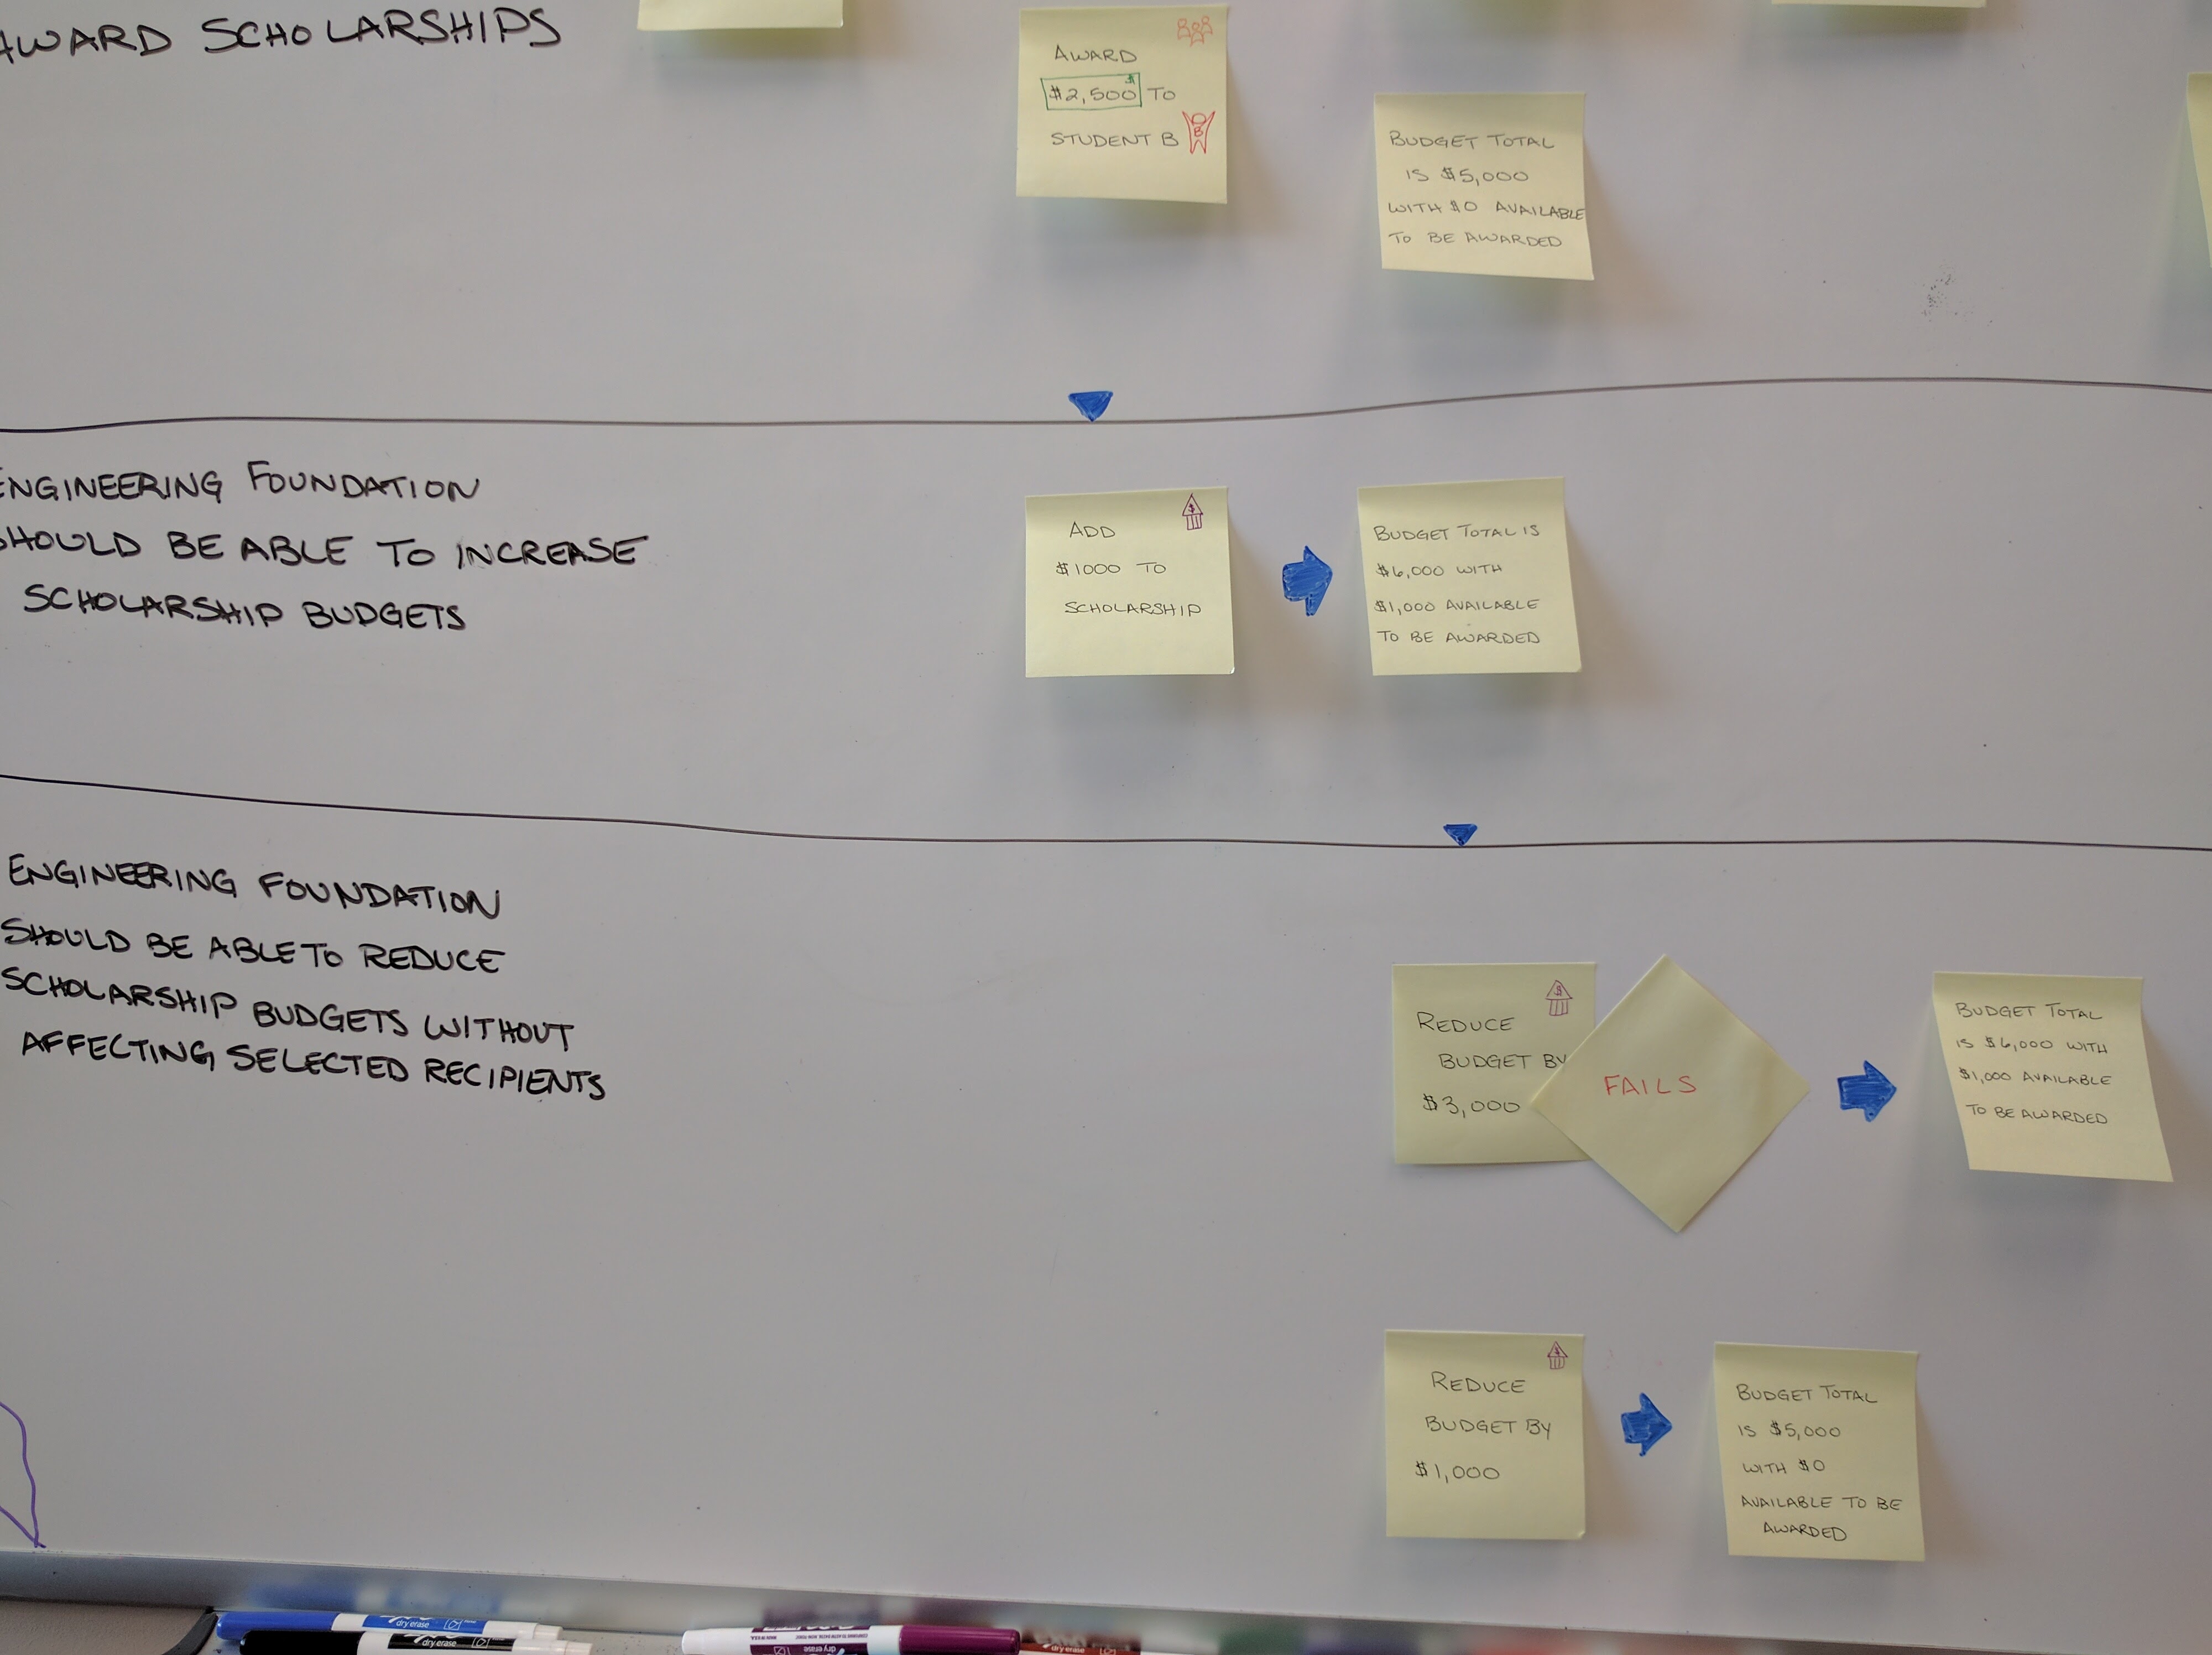 AWARD SCHOLARSHIPS
AWARD
$2,500 TO
STUDENT B
B
BUDGET TOTAL
IS $5,000
WITH $0 AVAILABLE
TO BE AWARDED
ENGINEERING FOUNDATION
SHOULD BE ABLE TO INCREASE
SCHOLARSHIP BUDGETS
ADD
$1000 TO
SCHOLARSHIP
BUDGET TOTAL IS
$6,000 WITH
$1,000 AVAILABLE
TO BE AWARDED
ENGINEERING FOUNDATION
SHOULD BE ABLE TO REDUCE
SCHOLARSHIP BUDGETS WITHOUT
AFFECTING SELECTED RECIPIENTS
REDUCE
BUDGET BY
$3,000
FAILS
BUDGET TOTAL
IS $6,000 WITH
$1,000 AVAILABLE
TO BE AWARDED
REDUCE
BUDGET BY
$1,000
BUDGET TOTAL
IS $5,000
WITH $0
AVAILABLE TO BE
AWARDED
dry erase
dry erase
dry erase
dry erase